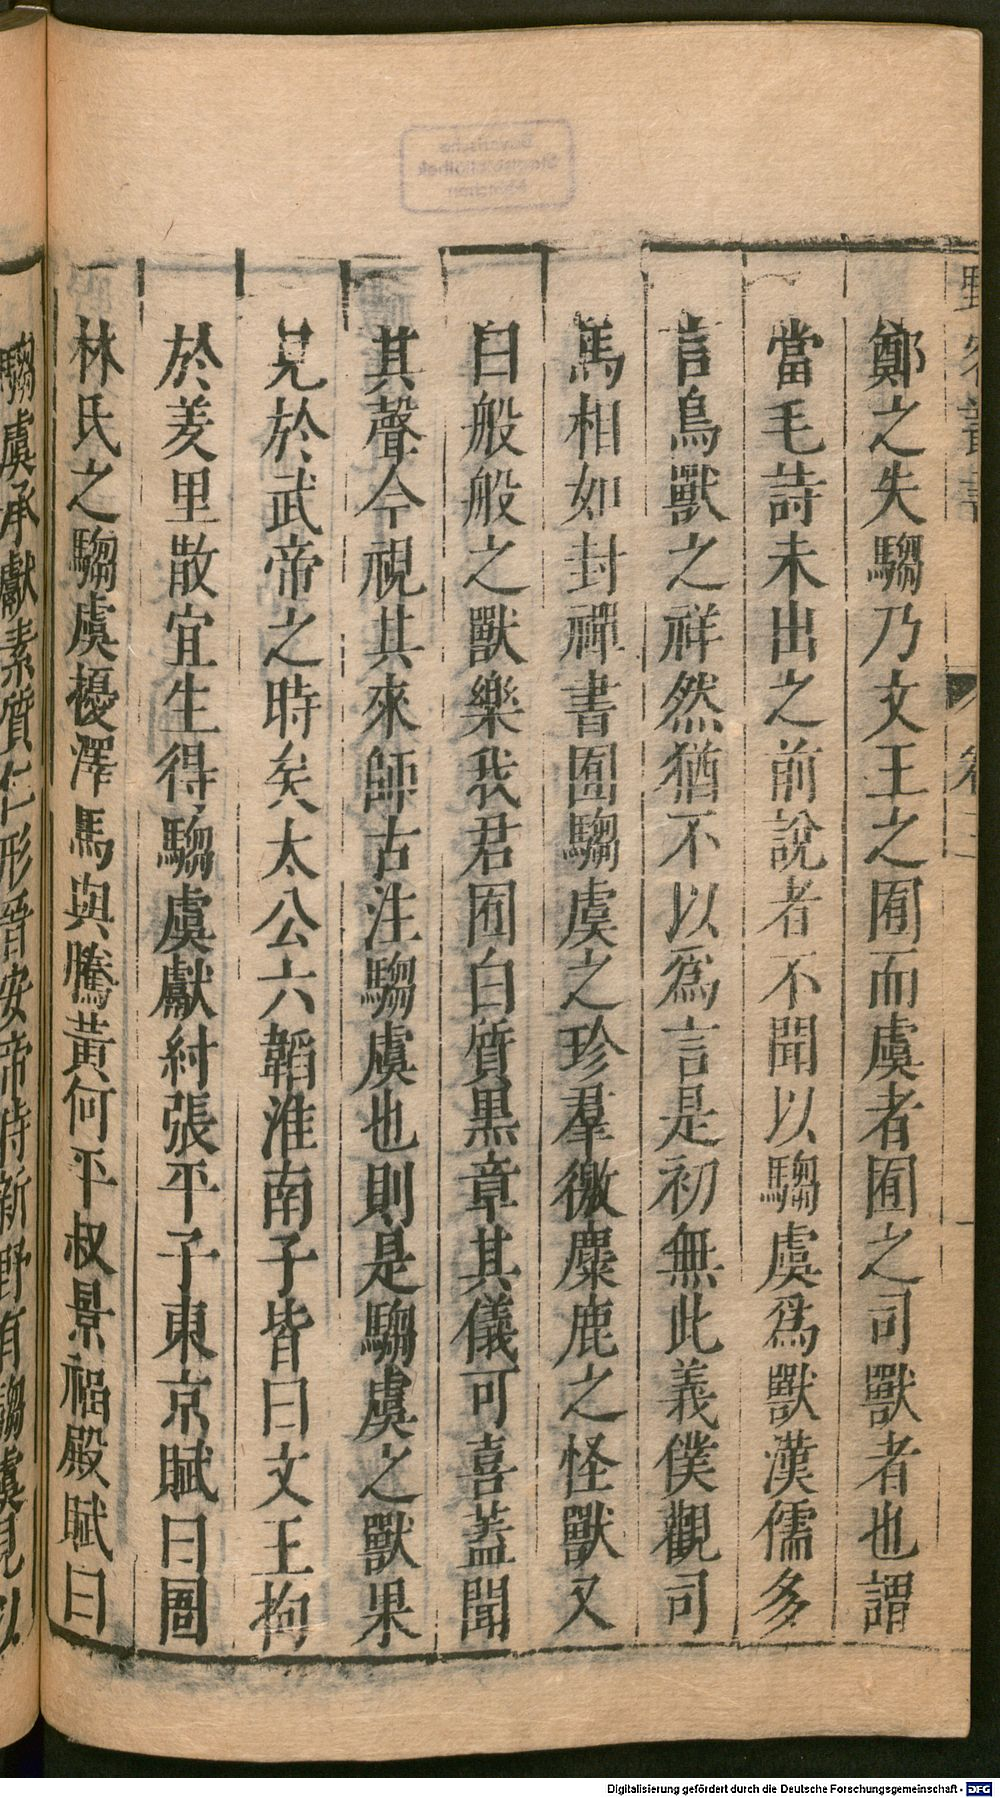 野客叢書
卷
鄭之失騶乃文王之囿而虞者囿之司獸者也謂
當毛詩未出之前說者不聞以騶虞爲獸漢儒多
言鳥獸之祥然猶不以爲言是初無此義僕觀司
馬相如封禪書囿騶虞之珍羣徼麋鹿之怪獸又
曰般般之獸樂我君囿白質黑章其儀可喜蓋聞
其聲今視其來師古注騶虞也則是騶虞之獸果
見於武帝之時矣太公六韜淮南子皆曰文王拘
於羑里散宜生得騶虞獻紂張平子東京賦曰圄
林氏之騶虞擾澤馬與騰黃何平叔景福殿賦曰
騶虞承獻素質仁形晉安帝時新野有騶虞見以
Bayerische
Staatsbibliothek
München
Digitalisierung gefördert durch die Deutsche Forschungsgemeinschaft - DFG